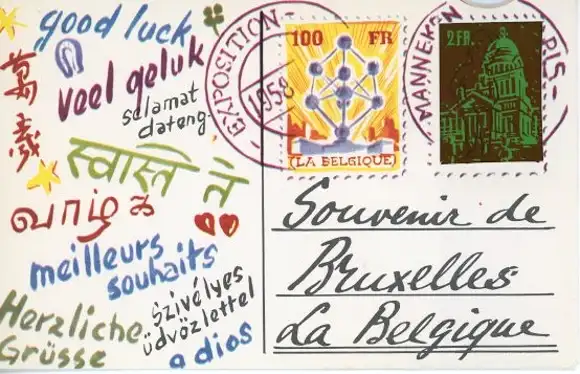 good luck
veel geluk
selamat
dateng-
萬
歳
स्वास्ते ते
வாழ்க
meilleurs
souhaits
Szivélyes
üdvözlettel
Herzliche
Grüsse
adios
EXPOSITION
1958
100 FR
(LA BELGIQUE)
MANNEKEN PIS-
2FR.
Souvenir de
Bruxelles
La Belgique